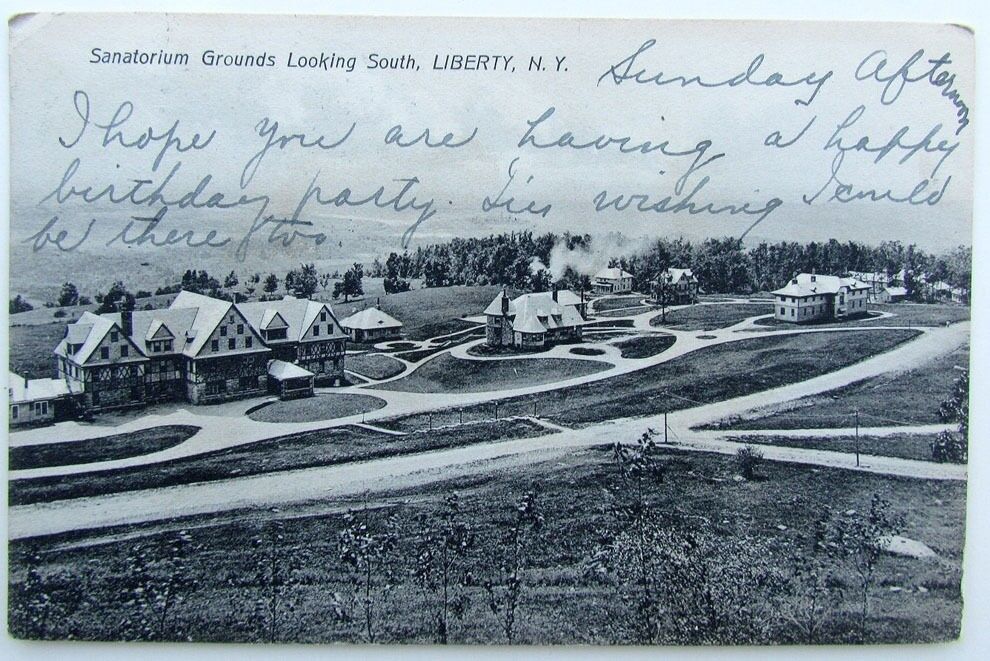 Sanatorium Grounds Looking South, LIBERTY, N. Y.
Sunday Afternoon
I hope you are having a happy
birthday party. I'm wishing I could
be there too.